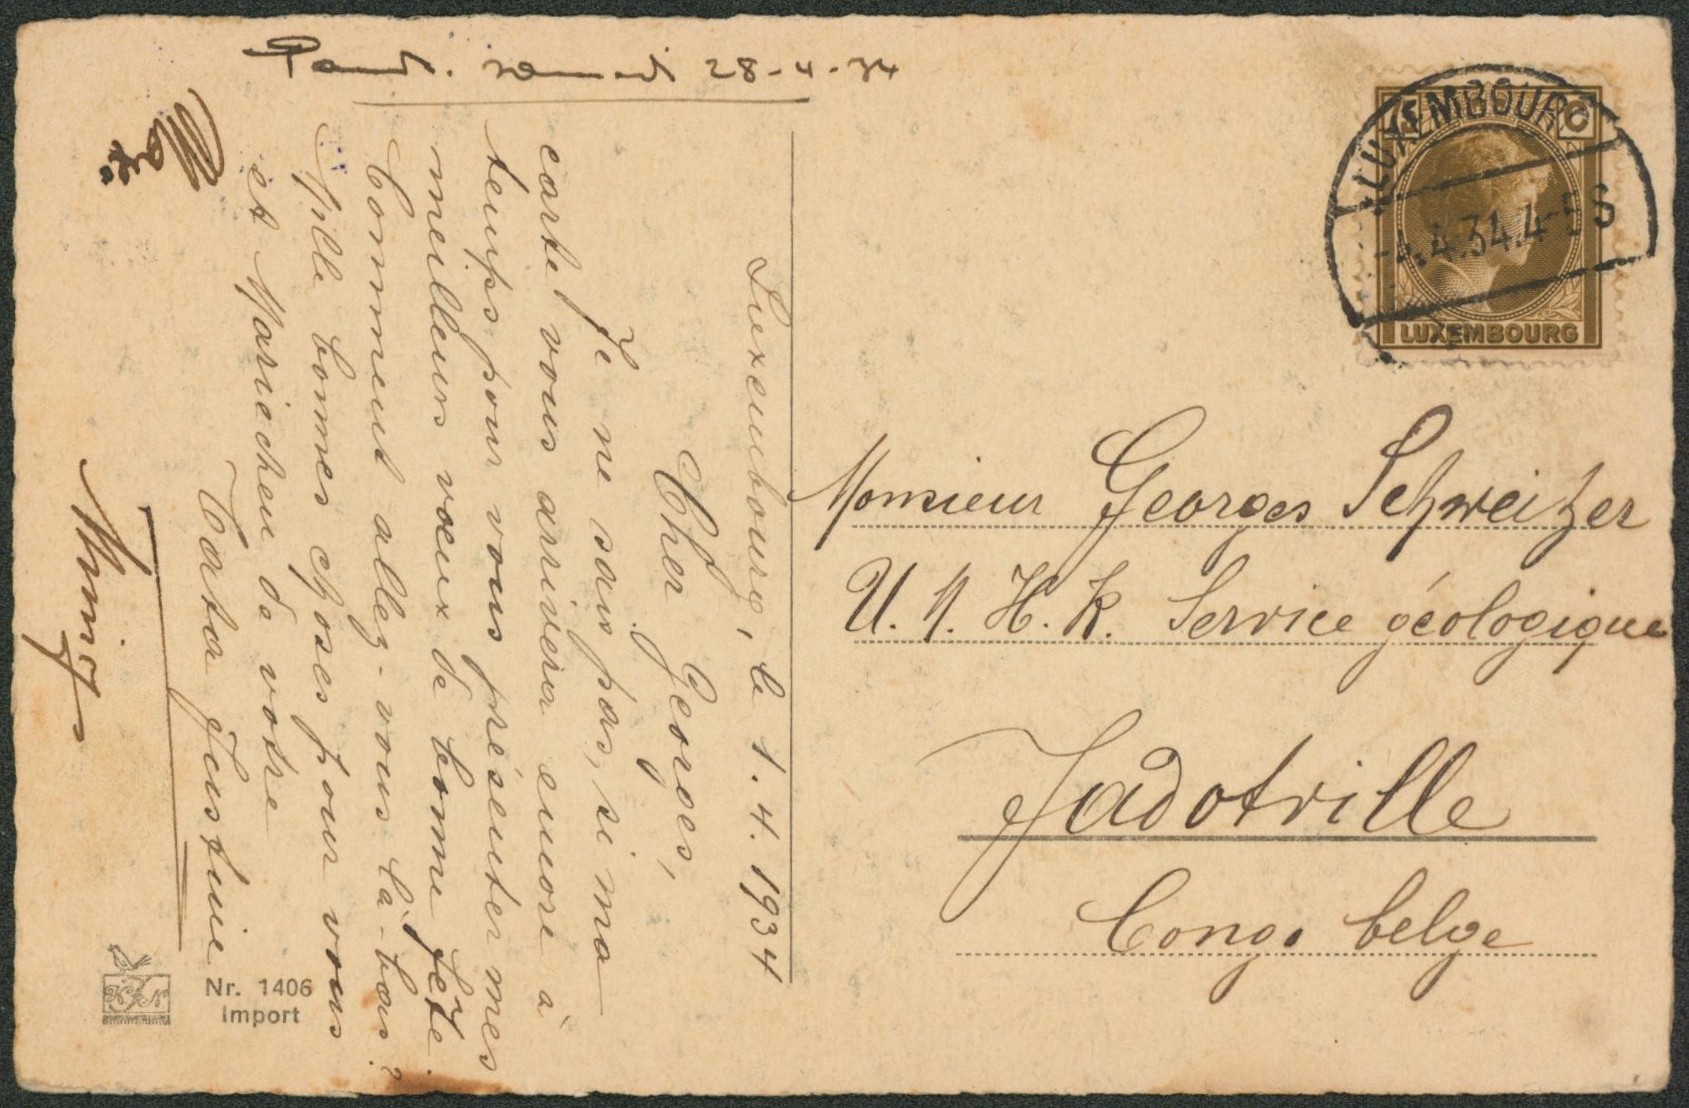 samedi 28-4-34
Luxembourg, le 1. 4. 1934
Cher Georges,
Je ne sais pas, si ma
carte vous arrivera encore à
temps pour vous présenter mes
meilleurs vœux de bonne fête.
Comment allez-vous là-bas?
Mille bonnes choses pour vous
et Mariechen de votre
Tata Justine
Max.
Nr. 1406
Import
LUXEMBOURG
4.4.34.4-5 S
LUXEMBOURG
Monsieur Georges Schweitzer
U. M. H. K. Service géologique
Jadotville
Congo belge